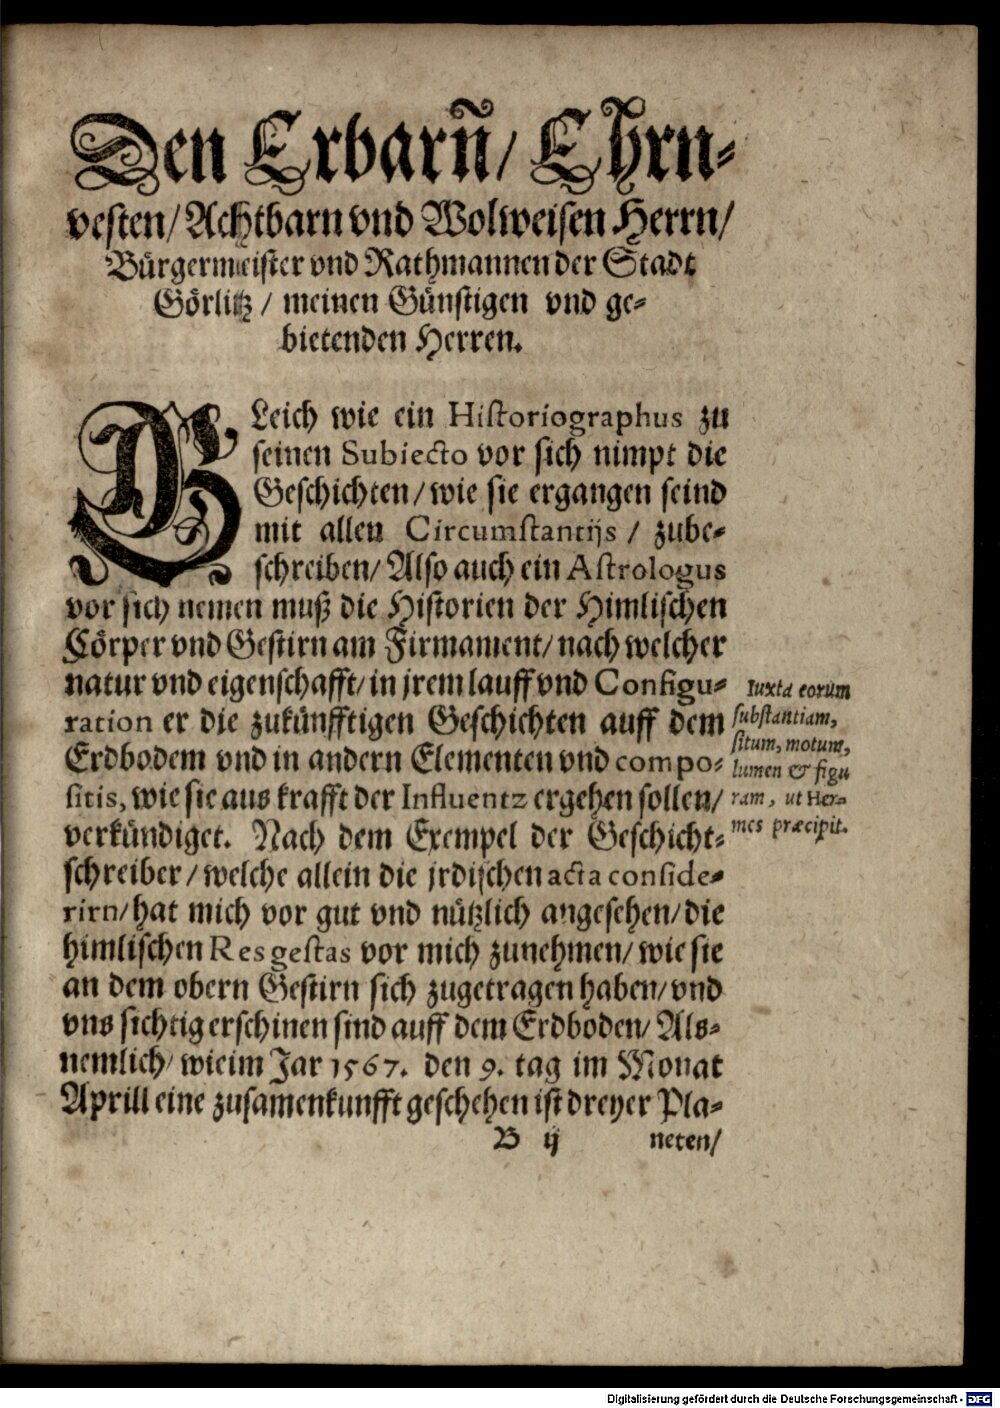 Den Erbarñ/ Ehrn-
vesten/ Achtbarn vnd Wolweisen Herrn/
Bürgermeister vnd Rathmannen der Stadt
Görlitz/ meinen Günstigen vnd ge-
bietenden Herren.
GLeich wie ein Historiographus zu
seinen Subiecto vor sich nimpt die
Geschichten/ wie sie ergangen seind
mit allen Circumstantijs/ zube-
schreiben/ Also auch ein Astrologus
vor sich nemen muß die Historien der Himlischen
Cörper vnd Gestirn am Firmament/ nach welcher
natur vnd eigenschafft/ in jrem lauff vnd Configu-
ration er die zukünfftigen Geschichten auff dem
Erdbodem vnd in andern Elementen vnd compo-
sitis, wie sie aus krafft der Influentz ergehen sollen/
verkündiget. Nach dem Exempel der Geschicht-
schreiber/ welche allein die jrdischen acta conside-
rirn/ hat mich vor gut vnd nützlich angesehen/ die
himlischen Res gestas vor mich zunehmen/ wie sie
an dem obern Gestirn sich zugetragen haben/ vnd
vns sichtig erschinen sind auff dem Erdboden/ Als-
nemlich/ wie im Jar 1567. den 9. tag im Monat
Aprill eine zusamenkunfft geschehen ist dreyer Pla-
B ij neten/
Iuxta eorum
substantiam,
situm, motum,
lumen & figu
ram, ut Her-
mes præcipit.
Digitalisierung gefördert durch die Deutsche Forschungsgemeinschaft - DFG